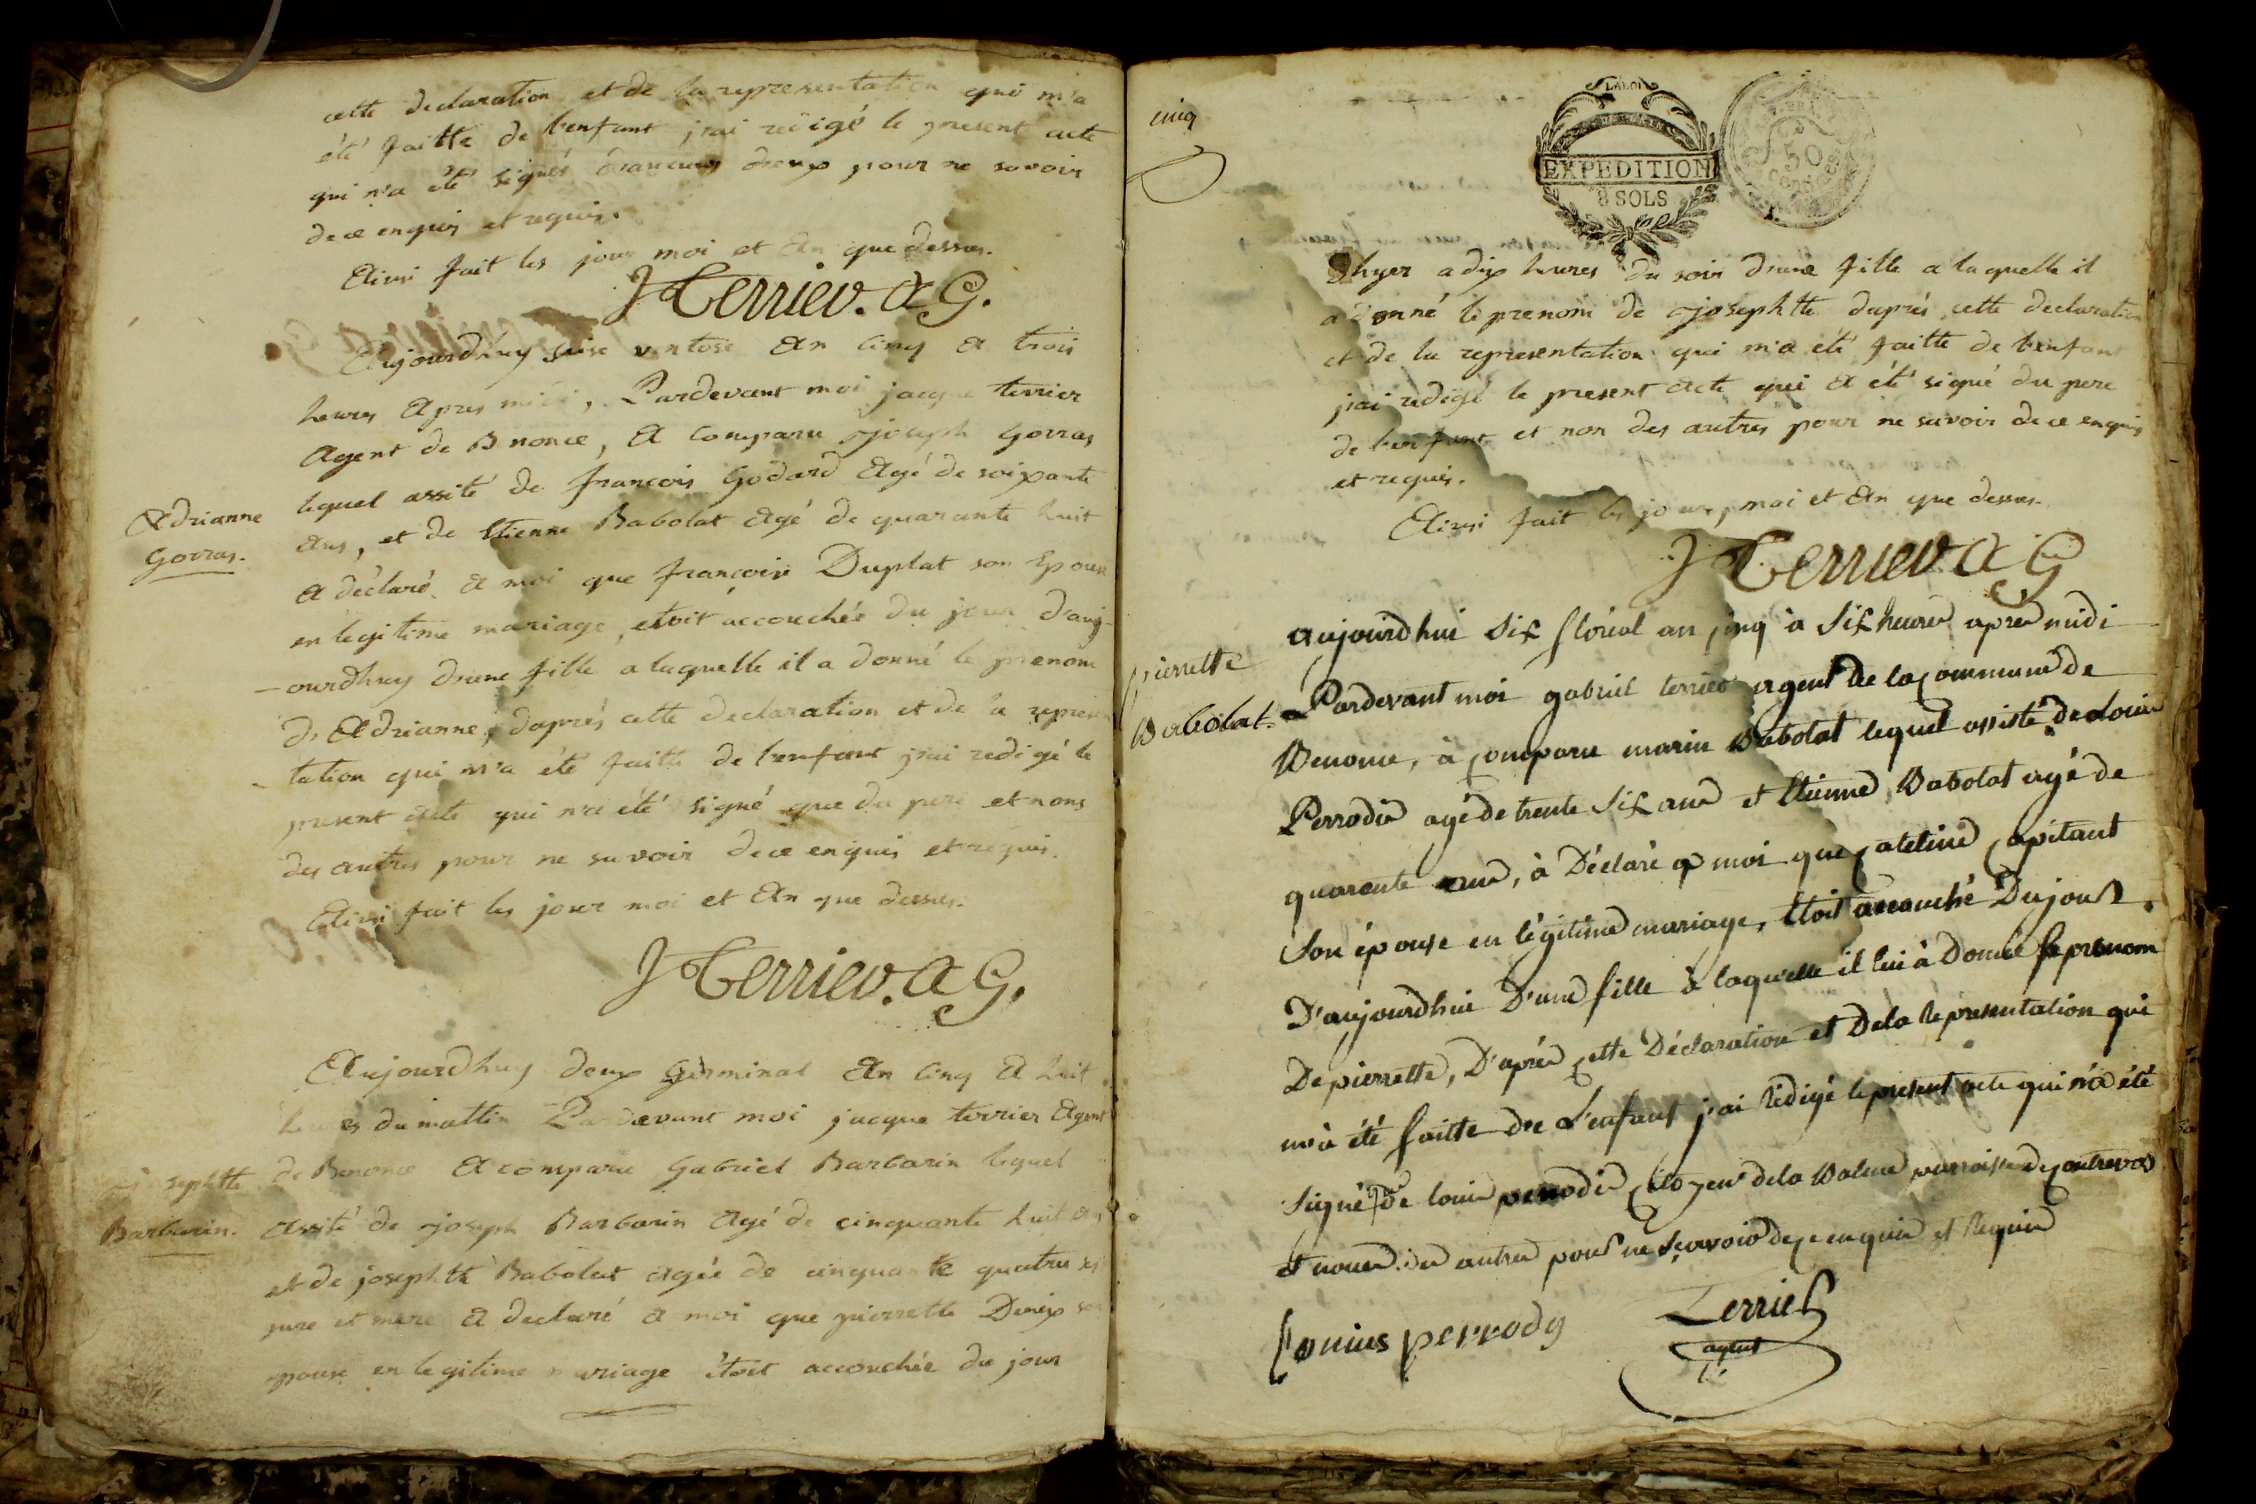 cette declaration et de la representation qui m'a
été faitte de l'enfant j'ai redigé le present acte
qui n'a été signés d'aucuns d'eux pour ne savoir
de ce enquis et requis.
Ainsi fait les jour moi et an que dessus.
J Terrier. a G.
Aujourdhuy seise ventose an cinq a trois
heures apres midi, Pardevant moi jacque terrier
agent de Benonce, a comparu joseph Gorras
lequel assité de françois Godard agé de soixante
ans, et de Etienne Babolat agé de quarante huit
a déclaré a moi que françoise Duplat son Epouse
en legitime mariage, etoit accouchée du jour d'auj-
Adrianne
Gorras.
-ourdhuy d'une fille a laquelle il a donné le prenom
de Adrianne, daprés cette declaration et de la represen
tation qui m'a été faitte de l'enfant j'ai redigé le
present acte qui n'a été signé que du pere et nons
des autres pour ne savoir de ce enquis et requis.
Ainsi fait les jour moi et an que dessus.
J Terrier. a G.
Aujourdhuy deux Germinal an cinq a huit
heures du mattin Pardevant moi jacque terrier agent
de Benonce a comparu Gabriel Barbarin lequel
josephtte
Barbarin.
assité de joseph Barbarin agé de cinquante huit ans
et de josephtte Babolat agée de cinquante quatre ses
pere et mere a declaré a moi que pierrette Deneix son
epouse en legitime mariage étoit accouchée du jour
cinq
LA LOI
EXPEDITION
8 SOLS
50
Centimes
d'hyer a dix heures du soir d'une fille a laquelle il
a donné le prenom de josephtte daprés cette declaration
et de la representation qui m'a été faitte de l'enfant
j'ai redigé le present acte qui a été signé du pere
de l'enfant et non des autres pour ne savoir de ce enquis
et requis.
Ainsi fait les jour, moi et an que dessus.
J Terrier a G
aujourdhui six floréal an cinq à six heures après midi
pierrette
Babolat.
Pardevant moi gabriel terrier agent de la commune de
Benonce, à comparu marin Babolat lequel assisté de louis
Perrodis agé de trente six ans et Etienne Babolat agé de
quarente ans, à Déclaré a moi que catetine capitant
son épouse en légitime mariage, étoit accouché Du jour
D'aujourdhui D'une fille à laquelle il lui à Donné le prenom
De pierrette, D'après cette Déclaration et De la Representation qui
m'à été faitte de L'enfant j'ai Redigé le present acte qui n'a été
signé que De louis perrodis citoyen de la Balme parroisse de contrevos
et nons des autres pour ne scavoir de ce enquis et Requis
louius perrody
Terrier
agent